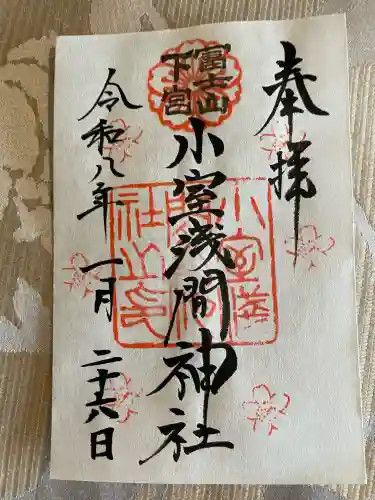 奉拝
富士山
下宮
小室浅間神社
小室浅間神社之印
令和八年一月二十六日